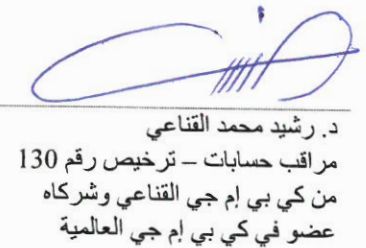 د. رشيد محمد القناعي
مراقب حسابات – ترخيص رقم 130
من كي بي إم جي القناعي وشركاه
عضو في كي بي إم جي العالمية